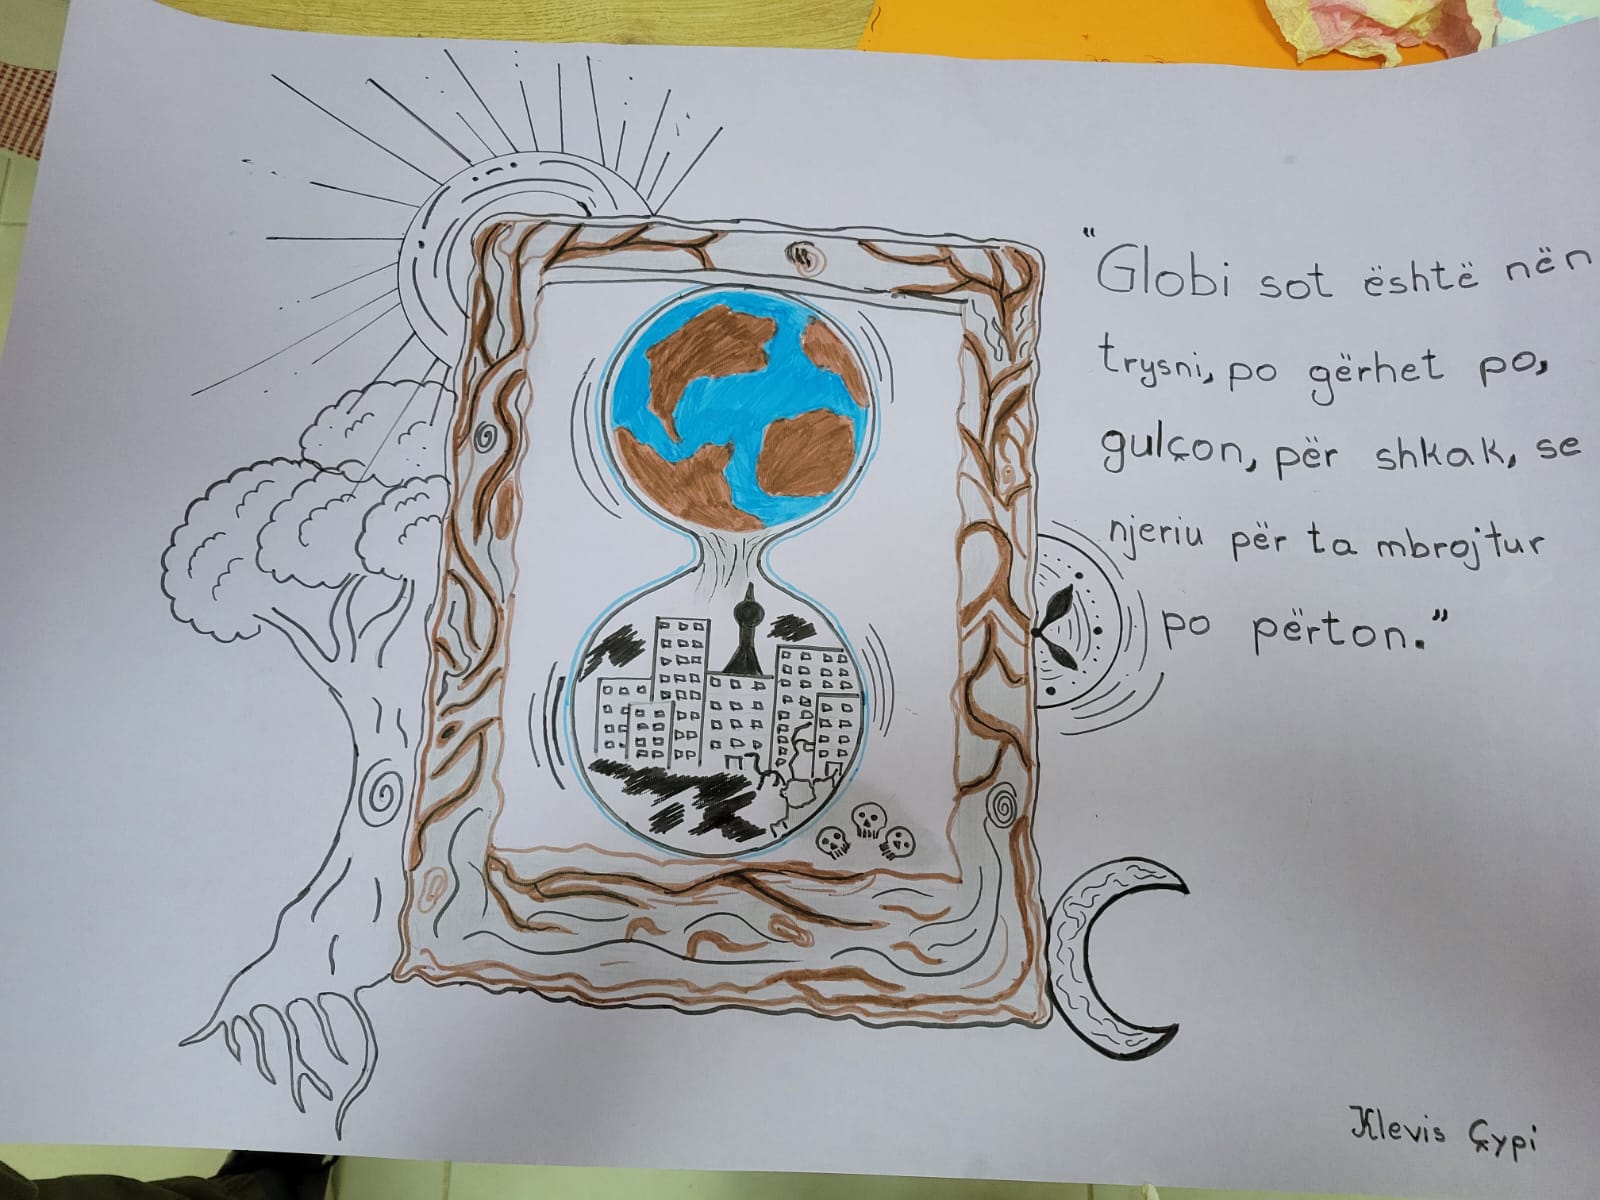 "Globi sot është nën
trysni, po gërhet po,
gulçon, për shkak, se
njeriu për ta mbrojtur
po përton."
Klevis Çypi